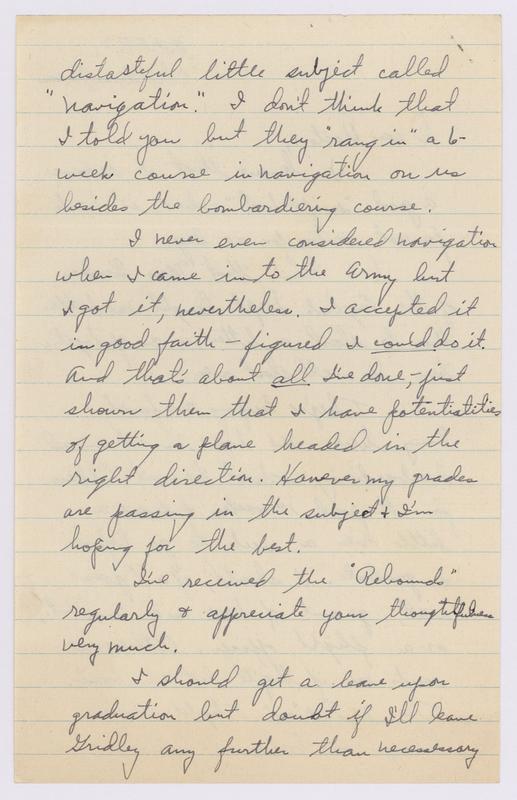 distasteful little subject called
"navigation." I don't think that
I told you but they "rang in" a 6-
week course in navigation on us
besides the bombardiering course.
I never even considered navigation
when I came into the Army but
I got it, nevertheless. I accepted it
in good faith - figured I could do it.
And that's about all I've done, - just
shown them that I have potentialities
of getting a plane headed in the
right direction. However my grades
are passing in the subject & I'm
hoping for the best.
I've received the "Rebounds"
regularly & appreciate your thoughtfulness
very much.
I should get a leave upon
graduation but doubt if I'll leave
Gridley any further than necessary